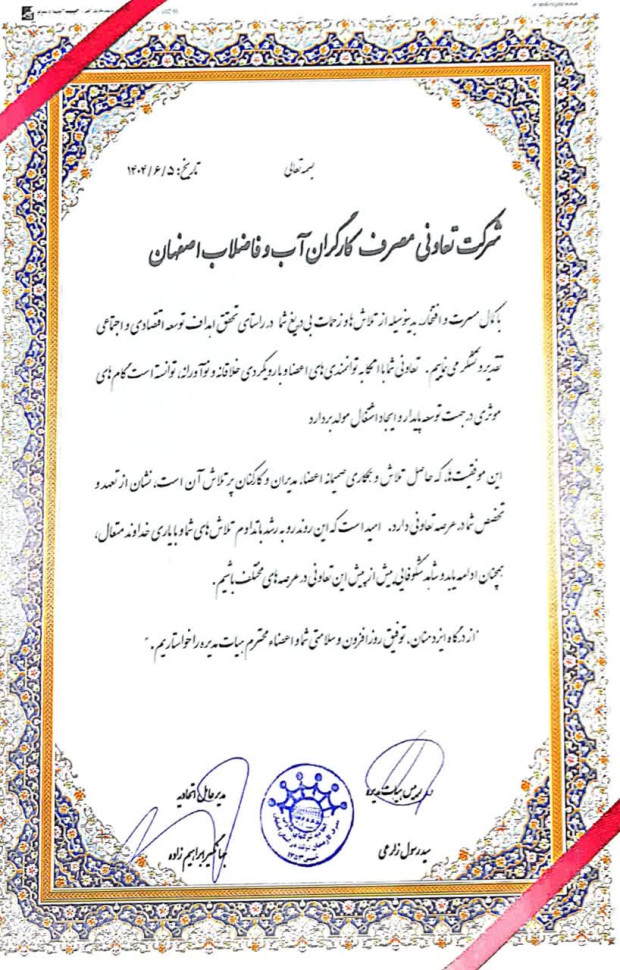 بسمه تعالی
تاریخ: ۱۴۰۴/۶/۵
شرکت تعاونی مصرف کارگران آب و فاضلاب اصفهان
با کمال مسرت و افتخار، بدینوسیله از تلاش ها و زحمات بی دریغ شما در راستای تحقق اهداف توسعه اقتصادی و اجتماعی
تقدیر و تشکر می نماییم. تعاونی شما با اتکا به توانمندی های اعضا و با رویکردی خلاقانه و نوآورانه، توانسته است گام های
موثری در جهت توسعه پایدار و ایجاد اشتغال مولد بردارد
این موفقیت ها، که حاصل تلاش و همکاری صمیمانه اعضا، مدیران و کارکنان پر تلاش آن است، نشان از تعهد و
تخصص شما در عرصه تعاونی دارد. امید است که این روند رو به رشد با تداوم تلاش های شما و با یاری خداوند متعال،
همچنان ادامه یابد و شاهد شکوفایی بیش از پیش این تعاونی در عرصه های مختلف باشیم.
"از درگاه ایزد منان، توفیق روزافزون و سلامتی شما و اعضاء محترم هیات مدیره را خواستاریم."
رییس هیات مدیره
سیدرسول زارعی
مدیرعامل اتحادیه
جهانگیر ابراهیم زاده